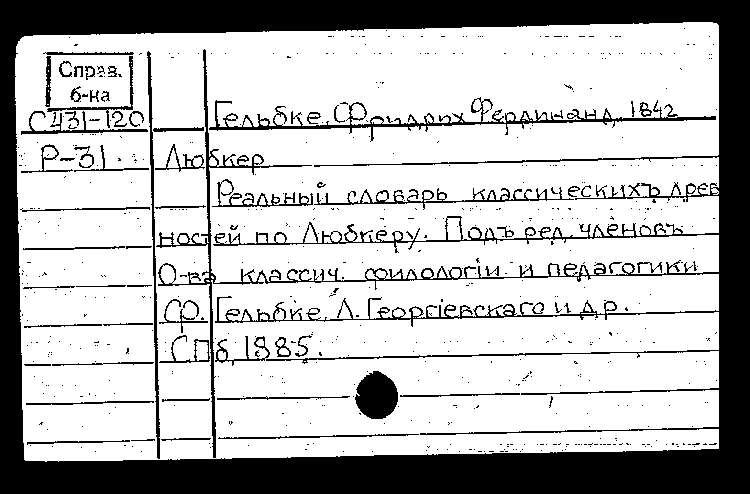 Справ.
б-ка
С431-120 Гельбке, Фридрих Фердинанд, 1842
Р-31. Любкер
Реальный словарь классическихъ древ
ностей по Любкеру. Подъ ред. членовъ
О-ва классич. филологiи и педагогики
Ф. Гельбке, Л. Георгiевскаго и др.
СПб, 1885.